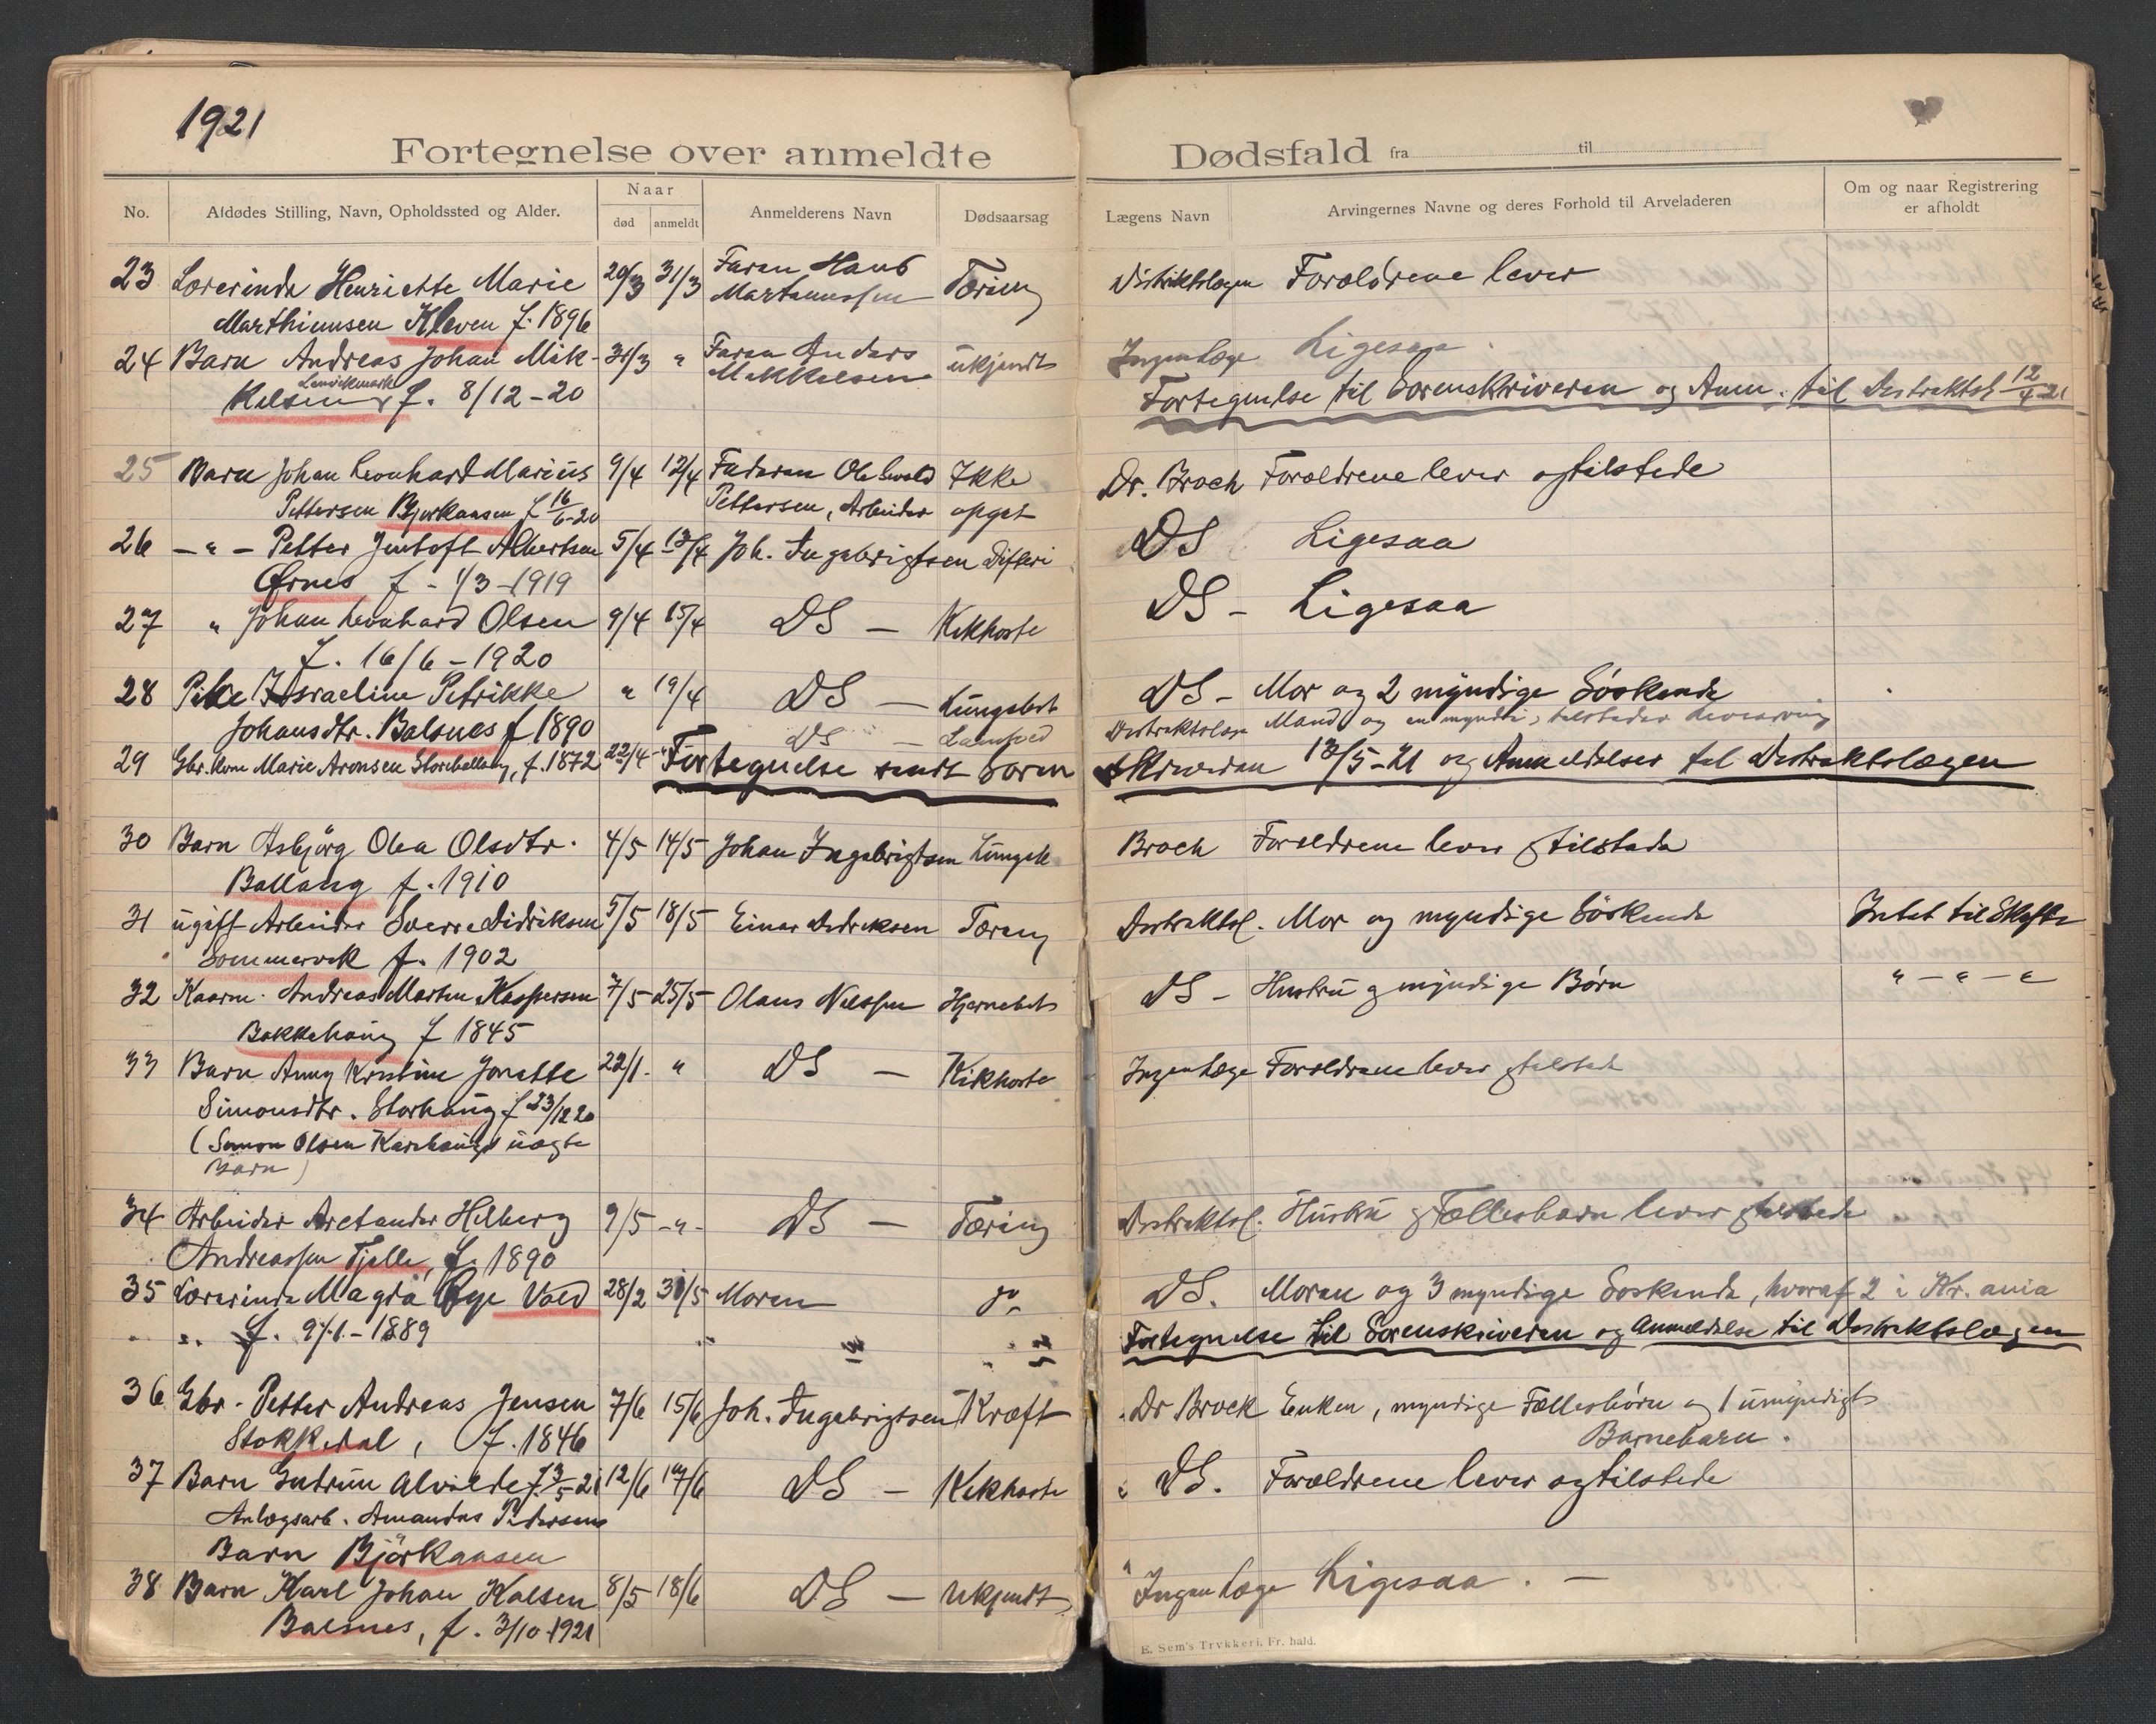 1921
Fortegnelse over anmeldte Dødsfald fra til
No. Afdødes Stilling, Navn, Opholdssted og Alder. Naar død anmeldt Anmelderens Navn Dødsaarsag Lægens Navn Arvingernes Navne og deres Forhold til Arveladeren Om og naar Registrering er afholdt
23 Lærerinde Henriette Marie 20/3 31/3 Faren Hans Tæring Distriktslægen Forældrene lever
Marthinusen Kleven f. 1896 Martinussen
24 Barn Andreas Johan Mik- 31/3 " Faren Anders ukjendt Ingen læge Ligesaa.
kelsen Lenvikmark f. 8/12-20 Mikkelsen
Fortegnelse til Sorenskriveren og Anm. til Distriktsl 12/4-21
25 Barn Johan Leonhard Marius 9/4 12/4 Faderen Ole Ewald Ikke Dr. Broch Forældrene lever og tilstede
Pettersen Bjørkaasen f 16/6-20 Pettersen, Arbeider opgit
26 - " - Petter Jentoft Albertsen 5/4 13/4 Joh. Ingebrigtsen Difteri DS Ligesaa
Ørnes f - 1/3-1919
27 " Johan Leonhard Olsen 9/4 15/4 DS - Kikhoste DS - Ligesaa
f. 16/6-1920
28 Pike Israeline Petrikke " 19/4 DS - Lungebet DS - Mor og 2 myndige Søskende
Johansdtr. Balsnes f 1890
29 Gbr. Kone Marie Aronsen Storeballang, f. 1872 22/4 -"- DS - Distriktslæge Mand og en myndig, tilsteder Livsarving
Fortegnelse sendt Soren skriveren 13/5-21 og Anmeldelser til Distriktslægen
30 Barn Asbjörg Olea Olsdtr. 4/5 14/5 Johan Ingebrigtsen Lungeb Broch Forældrene lever og tilstede
Ballang f. 1910
31 ugift Arbeider Sverre Didriksen 5/5 18/5 Einar Didriksen Tæring Distriktsl. Mor og myndige Söskende Intet til Skifte
Sommervik f. 1902
32 Kaarm. Andreas Martin Kaspersen 7/5 25/5 Olaus Nilssen Hjernebet DS - Hustru og myndige Børn " - " - "
Bakkehaug f 1845
33 Barn Anny Kristine Jonette 22/1. " DS - Kikhoste Ingen læge Forældrene lever og tilstede
Simonsdtr. Storhaug f 23/12 20
(Simon Olsen Storhaugs uægte
Barn)
34 Arbeider Arctander Hilberg 9/5 -"- DS - Tæring Distriktsl. Hustru og Fællesbarn lever og tilstede
Andreassen Tjelle, f. 1890
35 Lærerinde Magda Bye Vold 28/2 31/5 Moren do DS. Moren og 3 myndige Söskende, hvoraf 2 i Kr.ania
f. 9/1.-1889
Fortegnelse til Sorenskriveren og Anmeldelse til Distriktslægen
36 Gbr. Petter Andreas Jensen 7/6 15/6 Joh. Ingebrigtsen Kræft Dr Brock Enken, myndige Fællesbörn og 1 umyndigt
Stokkedal, f. 1846 Barnebarn.
37 Barn Gudrun Alvilde f. 3/5-21 12/6 17/6 DS - Kikhoste DS. Forældrene lever og tilstede
Anlægsarb. Amandus Pedersens
Barn Björkaasen
38 Barn Karl Johan Kalsen 8/5 18/6 DS - Ukjendt Ingen læge Ligesaa. -
Balsnes, f. 3/10-1921
E. Sem's Trykkeri, Fr. hald.